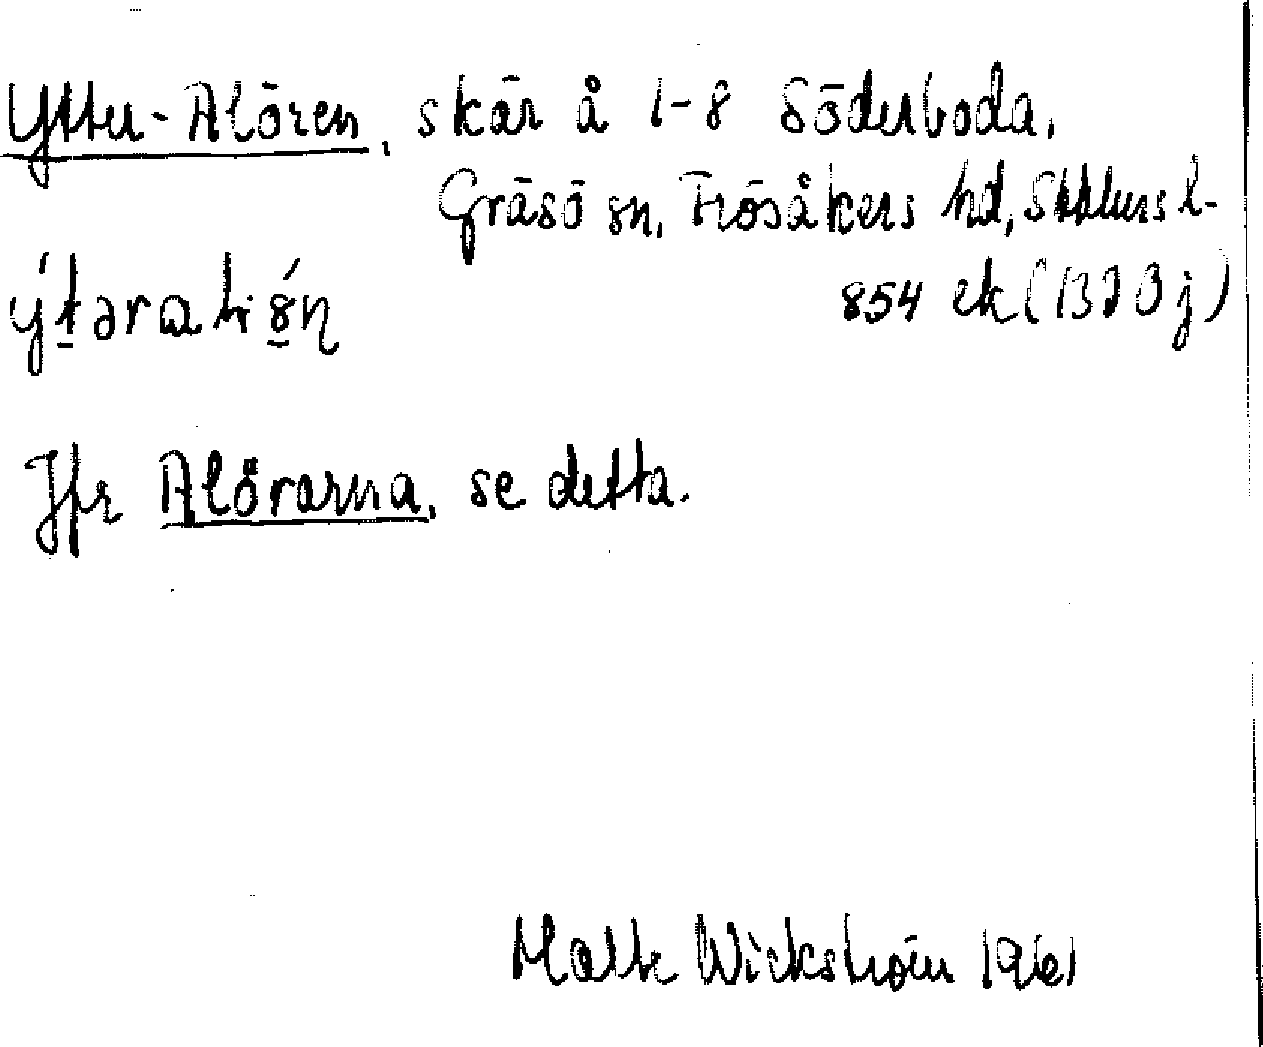 Ytter-Alören, skär å 1-8 Söderboda,
Gräsö sn, Frösåkers hd, Sthlms l-
854 ek (13I 0 j)
Jfr Alörarna, se detta.
Malte Wickström 1961